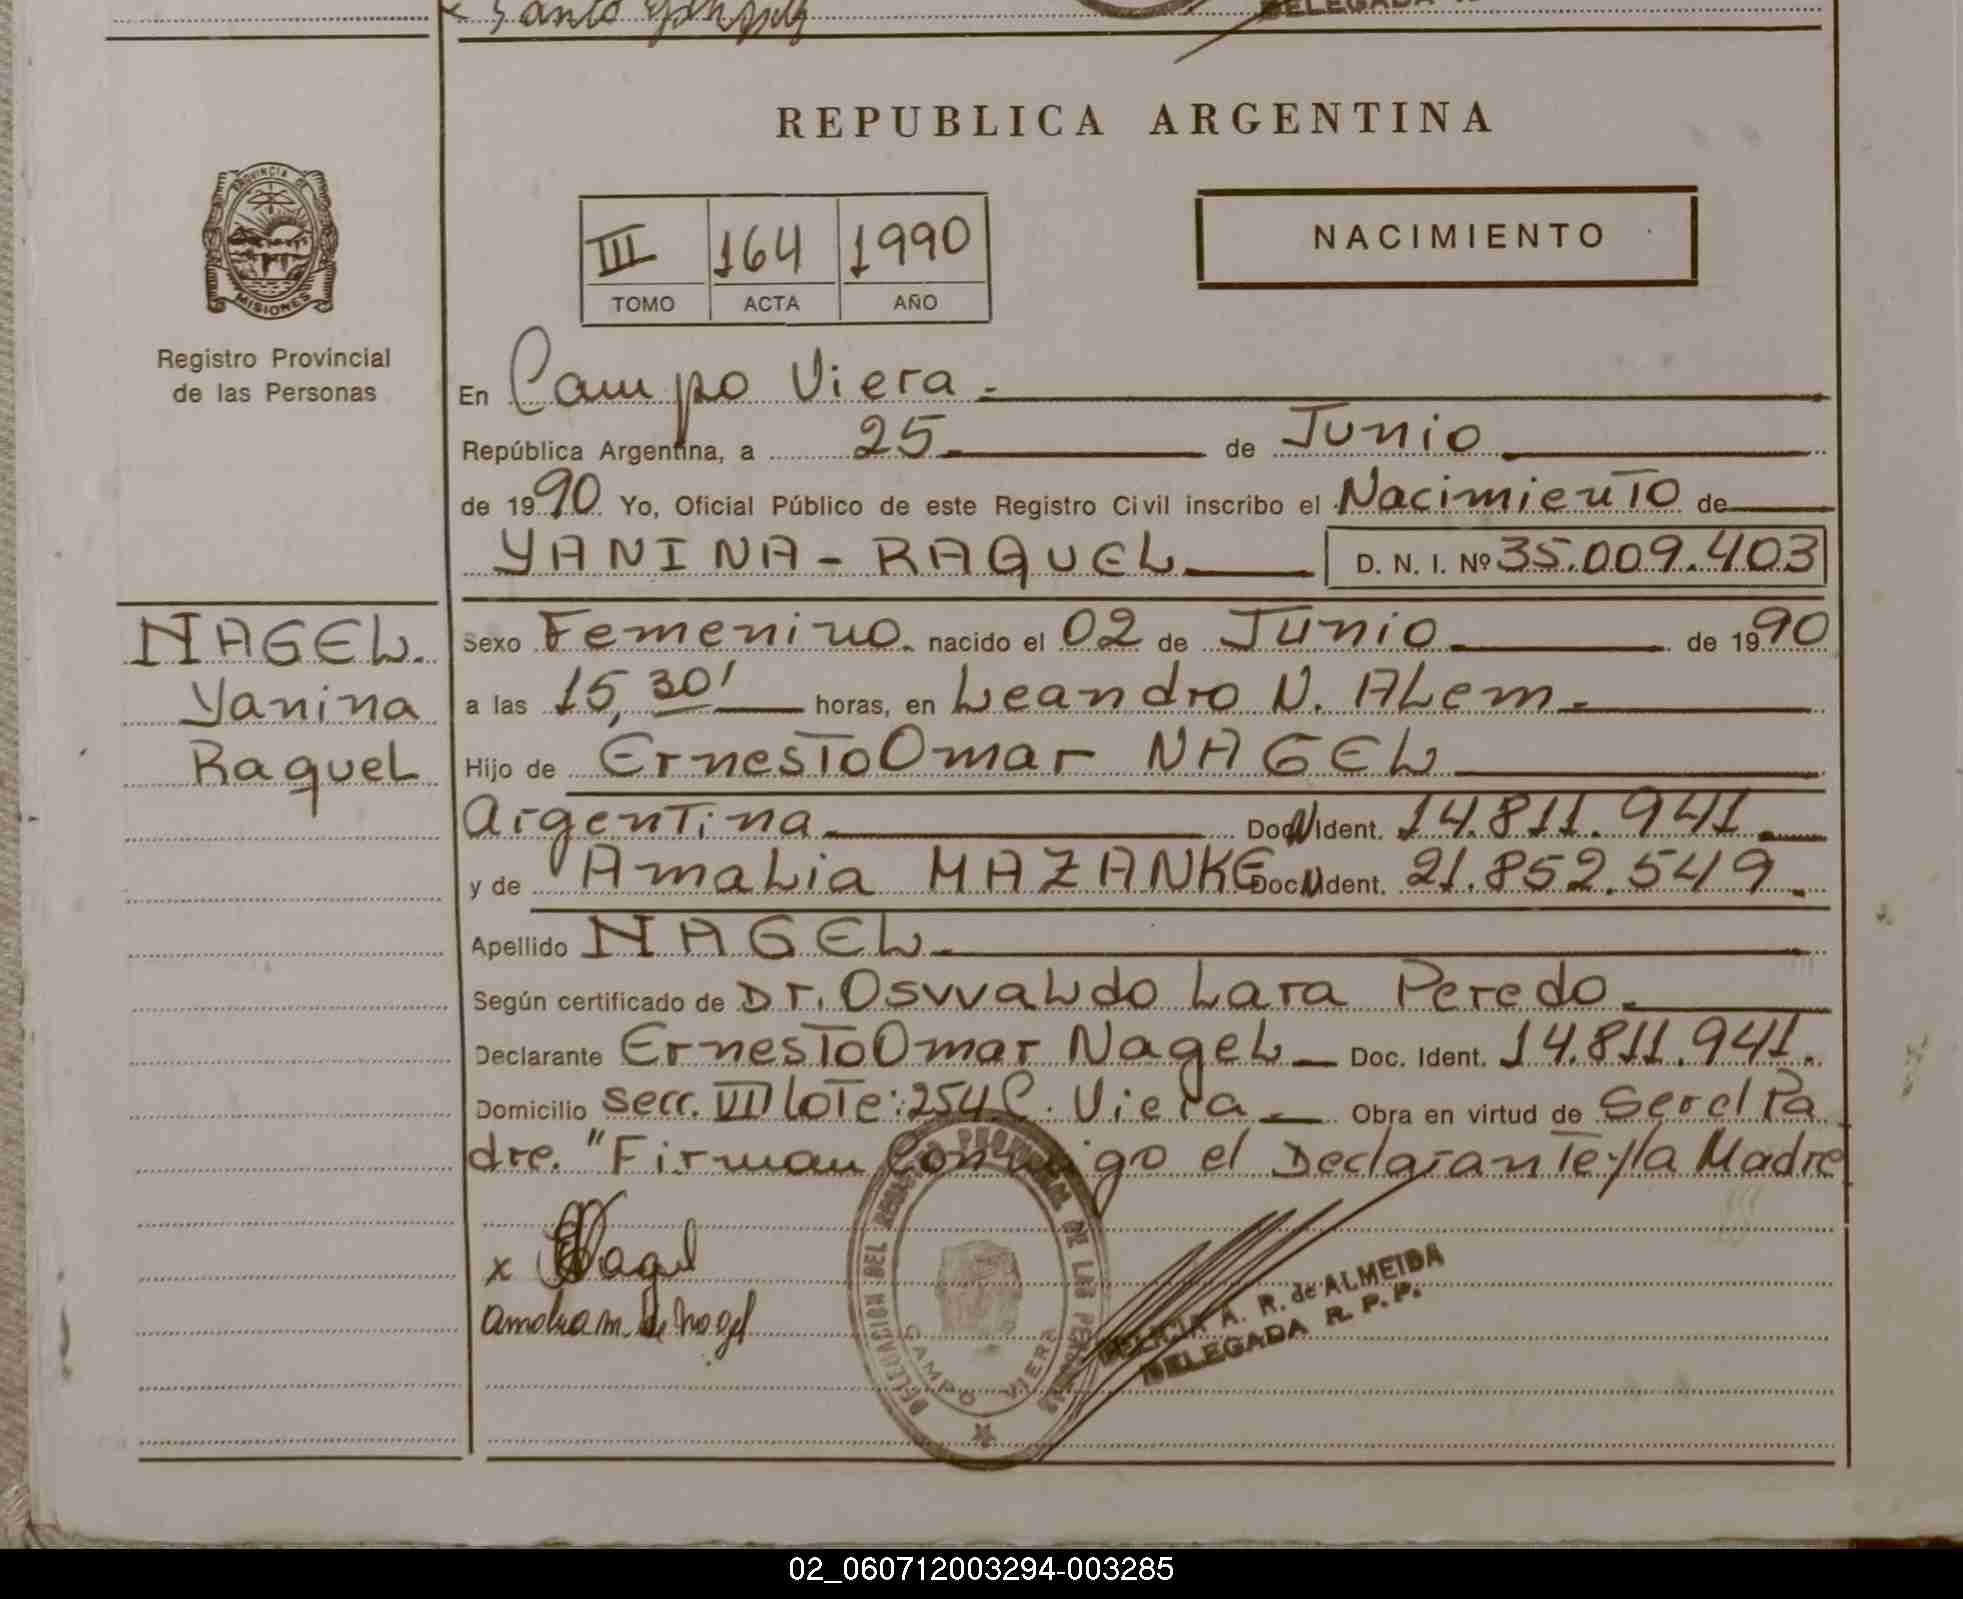 REPUBLICA ARGENTINA
PROVINCIA DE
MISIONES
Registro Provincial
de las Personas
III 164 1990
TOMO ACTA AÑO
NACIMIENTO
En Campo Viera.-
República Argentina, a 25 de Junio
de 1990 Yo, Oficial Público de este Registro Civil inscribo el Nacimiento de
YANINA - RAQUEL D. N. I. Nº 35.009.403
NAGEL.
Yanina
Raquel
Sexo Femenino. nacido el 02 de Junio de 1990
a las 15,30' horas, en Leandro N. ALem.-
Hijo de Ernesto Omar NAGEL
Argentina Doc. Ident. 14.811.941.
y de Amalia MAZANKE Doc. Ident. 21.852.549.
Apellido NAGEL.
Según certificado de Dr. Osvvaldo Lara Peredo.
Declarante Ernesto Omar Nagel Doc. Ident. 14.811.941.
Domicilio secc. VII lote: 254 C. Viera.- Obra en virtud de Ser el Pa
dre. "Firman Conmigo el Declarante y la Madre
x Nagel
Amalia m. de nagel
DELEGACION DEL REGISTRO PROVINCIAL DE LAS PERSONAS
CAMPO VIERA
FELICIA A. R. de ALMEIDA
DELEGADA R. P. P.
02_060712003294-003285